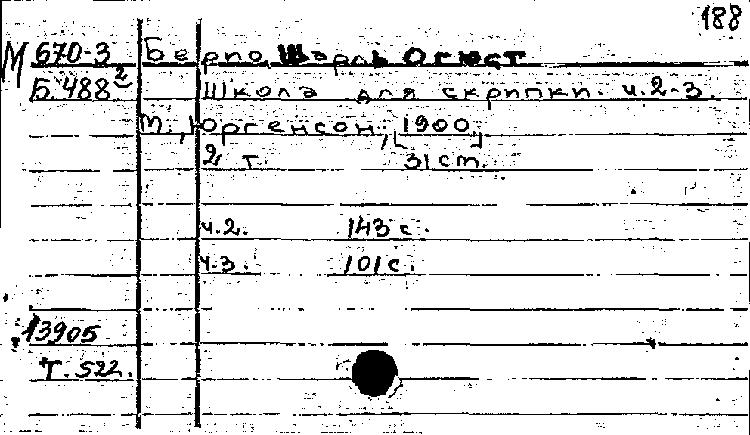 188
М 670-3 Берио, Шарль Огюст
Б. 488² Школа для скрипки. ч. 2-3.
М., Юргенсон, [1900]
2 т. 31 см.
ч. 2. 143 с.
ч. 3. 101 с.
13905
Т. 522.